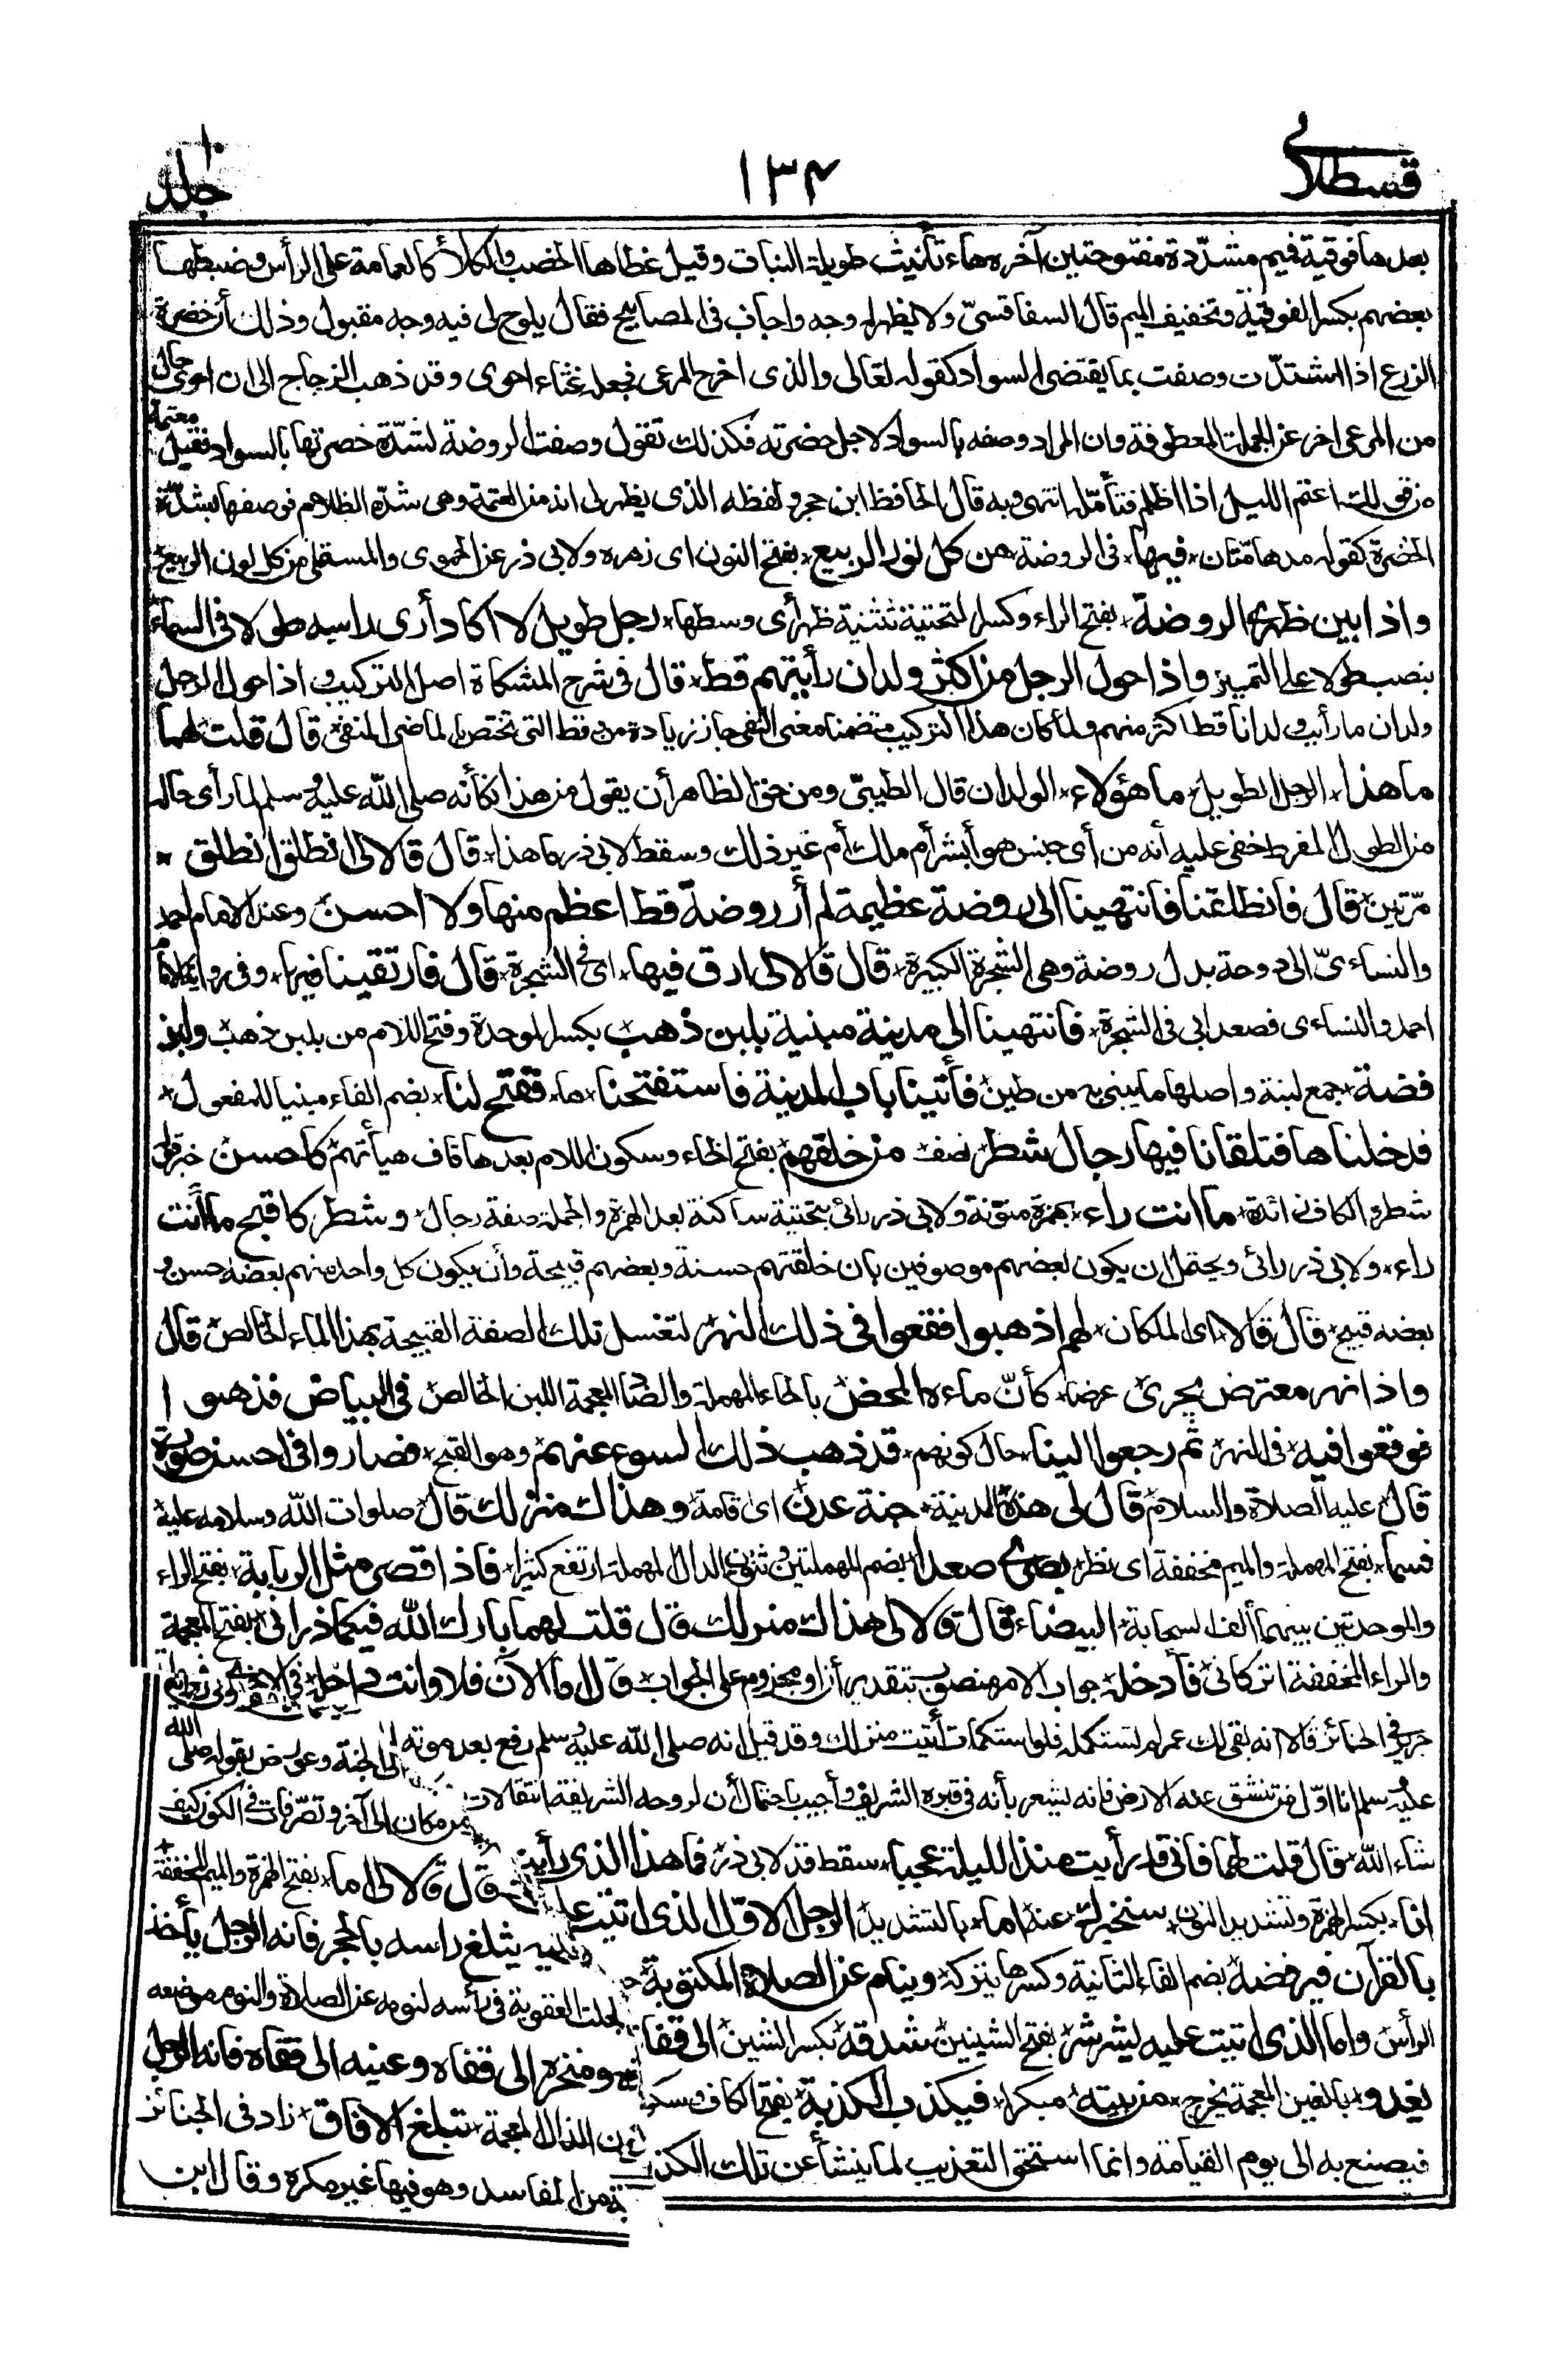 قسطلانی ١٣٤ جلد ١٠
بعدها فوقية فميم مشدّدة مفتوحتين آخره هاء تأنيث طويلة النبات وقيل غطاها الخصب والكلأ كالعمامة على الرأس وضبطها
بعضهم بكسر الفوقية وتخفيف الميم قال السفاقسيّ ولا يظهر له وجه واجاب في المصابيح فقال يلوح لى فيه وجه مقبول وذلك أن خضرة
الزرع اذا اشتدّت وصفت بما يقتضى السواد كقوله تعالى والذى اخرج المرعى فجعله غثاء احوى وقد ذهب الزجاج الى ان احوى حال
من المرعى اخر عن الجملة المعطوفة وان المراد وصفه بالسواد لاجل خضرته فكذلك تقول وصفت الروضة لشدّة خضرتها بالسواد فقيل معتمة
من قولك اعتم الليل اذا اظلم فتأمّله انتهى وبه قال الحافظ ابن حجر ولفظه الذى يظهر لى انه من العتمة وهى شدّة الظلام فوصفها بشدّة
الخضرة كقوله مدهامّتان * فيها * فى الروضة * من كل نور الربيع * بفتح النون اى زهره ولابى ذر عن الحموى والمستملى من كل لون الربيع *
واذا بين ظهرى الروضة * بفتح الراء وكسر التحتية تثنية ظهر أى وسطها * رجل طويل لا اكاد أرى راسه طولا فى السماء *
بنصب طولا على التمييز واذا حول الرجل من اكثر ولدان رأيتهم قط * قال فى شرح المشكاة اصل التركيب واذا حول الرجل
ولدان ما رأيت ولدانا قط اكثر منهم ولما كان هذا التركيب متضمنا معنى النفى جاز زيادة من وقط التى تختص بالماضى المنفى * قال قلت لهما
ما هذا * الرجل الطويل * ما هؤلاء * الولدان قال الطيبىّ ومن حق الظاهر أن يقول من هذا فكأنه صلى الله عليه وسلم لما رأى حاله
من الطول المفرط خفى عليه أنه من أى جنس هو أبشر أم ملك أم غير ذلك وسقط لابى ذر ما هذا * قال قالا لى انطلق انطلق *
مرّتين * قال فانطلقنا فانتهينا الى روضة عظيمة لم أر روضة قط اعظم منها ولا احسن * وعند الامام احمد
والنساءىّ الى دوحة بدل روضة وهى الشجرة الكبيرة * قال قالا لى ارق فيها * اى فى الشجرة * قال فارتقينا فيها * وفى رواية الامام
احمد والنساءى فصعدا بى فى الشجرة * فانتهينا الى مدينة مبنية بلبن ذهب بكسر الموحدة وفتح اللام من بلبن ذهب * ولبن
فضة * جمع لبنة واصلها ما يبنى به من طين * فأتينا باب المدينة فاستفتحنا * ها * ففتح لنا * بضم الفاء مبنيا للمفعول *
فدخلناها فتلقانا فيها رجال شطر * نصف * من خلقهم * بفتح الخاء وسكون اللام بعدها قاف هيأتهم * كاحسن * خبر قوله
شطر والكاف زائدة * ما انت راء * بهمزة منوّنة ولابى ذر رائى بتحتية ساكنة بعد الهمزة والجملة صفة رجال * وشطر كاقبح ما أنت
راء * ولابى ذر رائى ويحتمل ان يكون بعضهم موصوفين بان خلقتهم حسنة وبعضهم قبيحة وأن يكون كل واحد منهم بعضه حسن و
بعضه قبيح * قال قالا * اى الملكان * لهم اذهبوا فقعوا فى ذلك النهر * لتغسل تلك الصفة القبيحة بهذا الماء الخالص * قال
واذا نهر معترض يجرى * عرضا * كأنّ ماءه المحض * بالحاء المهملة والضاد المعجمة اللبن الخالص * فى البياض فذهبوا
فوقعوا فيه * فى النهر * ثم رجعوا الينا * حال كونهم * قد ذهب ذلك السوء عنهم * وهو القبح * فصاروا فى احسن صورة
قال * عليه الصلاة والسلام * قال لى هذه * المدينة * جنة عدن * اى اقامة * وهذاك منزلك قال * صلوات الله وسلامه عليه *
فسما * بفتح المهملة والميم مخففة اى نظر * بصرى صعدا * بضم المهملتين وتنوين الدال المهملة ارتفع كثيرا * فاذا قصر مثل الربابة * بفتح الراء
والموحدتين بينهما ألف السحابة * البيضاء * قال قالا لى هذاك منزلك قال قلت لهما بارك الله فيكما ذرانى * بفتح المعجمة
والراء المخففة اتركانى * فأدخله * جواب الامر منصوب بتقدير أن او مجزوم على الجواب * قالا أما الآن فلا وانت داخله * فى الاخرى وفى رواية
جرير فى الجنائز قالا انه بقى لك عمر لم تستكمله فلو استكملت أتيت منزلك وقد قيل انه صلى الله عليه وسلم رفع بعد موته الى الجنة وعورض بقوله صلى الله
عليه وسلم انا اوّل من تنشق عنه الارض فانه يشعر بأنه فى قبره الشريف وأجيب باحتمال أن لروحه الشريفة انتقالات من مكان الى آخر وتصرّفات فى الكون كيف
شاء الله * قال قلت لهما فانى قد رأيت منذ الليلة عجبا * سقط قد لابى ذر * فما هذا الذى رأيت * قال قالا لى اما * بفتح الهمزة والميم المخففة *
انا * بكسر الهمزة وتشديد النون * سنخبرك * عنه * اما * بالتشديد * الرجل الاوّل الذى اتيت عليه يثلغ راسه بالحجر فانه الرجل يأخذ
بالقرآن فيرفضه * بضم الفاء الثانية وكسرها يتركه * وينام عن الصلاة المكتوبة * جعلت العقوبة فى رأسه لنومه عن الصلاة والنوم موضعه
الرأس * واما الذى اتيت عليه يشرشر * بفتح الشينين * شدقه * بكسر الشين * الى قفاه ومنخره الى قفاه وعينه الى قفاه فانه الرجل
يغدو * بالغين المعجمة يخرج * من بيته * مبكرا * فيكذب الكذبة * بفتح الكاف وسكون الذال المعجمة * تبلغ الآفاق * زاد فى الجنائز
فيصنع به الى يوم القيامة وانما استحق التعذيب لما ينشأ عن تلك الكذبة من المفاسد وهو فيها غير مكره وقال ابن